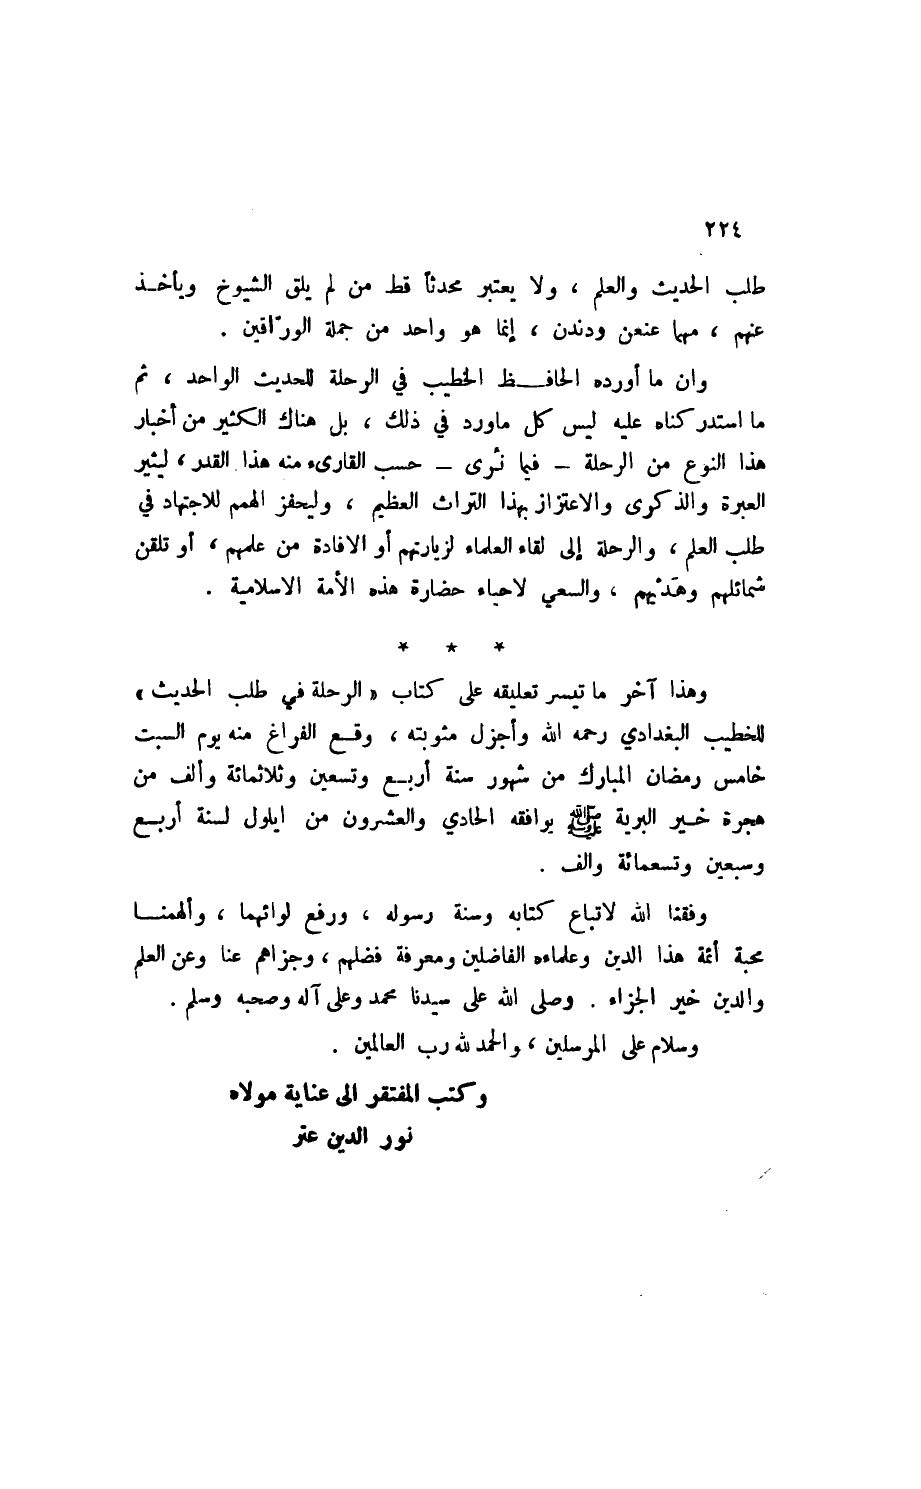 ٢٢٤
طلب الحديث والعلم ، ولا يعتبر محدثاً قط من لم يلق الشيوخ ويأخـذ
عنهم ، مهما عنعن ودندن ، إنما هو واحد من جملة الورّاقين .
وان ما أورده الحافـــظ الخطيب في الرحلة للحديث الواحد ، ثم
ما استدركناه عليه ليس كل ماورد في ذلك ، بل هناك الكثير من أخبار
هذا النوع من الرحلة – فيما نُرى – حسب القارىء منه هذا القدر ، ليثير
العبرة والذكرى والاعتزاز بهذا التراث العظيم ، وليحفز الهمم للاجتهاد في
طلب العلم ، والرحلة إلى لقاء العلماء لزيارتهم أو الافادة من علمهم ، أو تلقن
شمائلهم وهَدْيهم ، والسعي لاحياء حضارة هذه الأمة الاسلامية .
* * *
وهذا آخر ما تيسر تعليقه على كتاب « الرحلة في طلب الحديث »
للخطيب البغدادي رحمه الله وأجزل مثوبته ، وقـع الفراغ منه يوم السبت
خامس رمضان المبارك من شهور سنة أربـع وتسعين وثلاثمائة وألف من
هجرة خـير البرية ﷺ يوافقه الحادي والعشرون من ايلول لـسنة أربـع
وسبعين وتسعمائة والف .
وفقنا الله لاتباع كتابه وسنة رسوله ، ورفع لوائهما ، وألهمنــا
محبة أئمة هذا الدين وعلماءه الفاضلين ومعرفة فضلهم ، وجزاهم عنا وعن العلم
والدين خير الجزاء . وصلى الله على سيدنا محمد وعلى آله وصحبه وسلم .
وسلام على المرسلين ، والحمد لله رب العالمين .
وكتب المفتقر الى عناية مولاه
نور الدين عتر